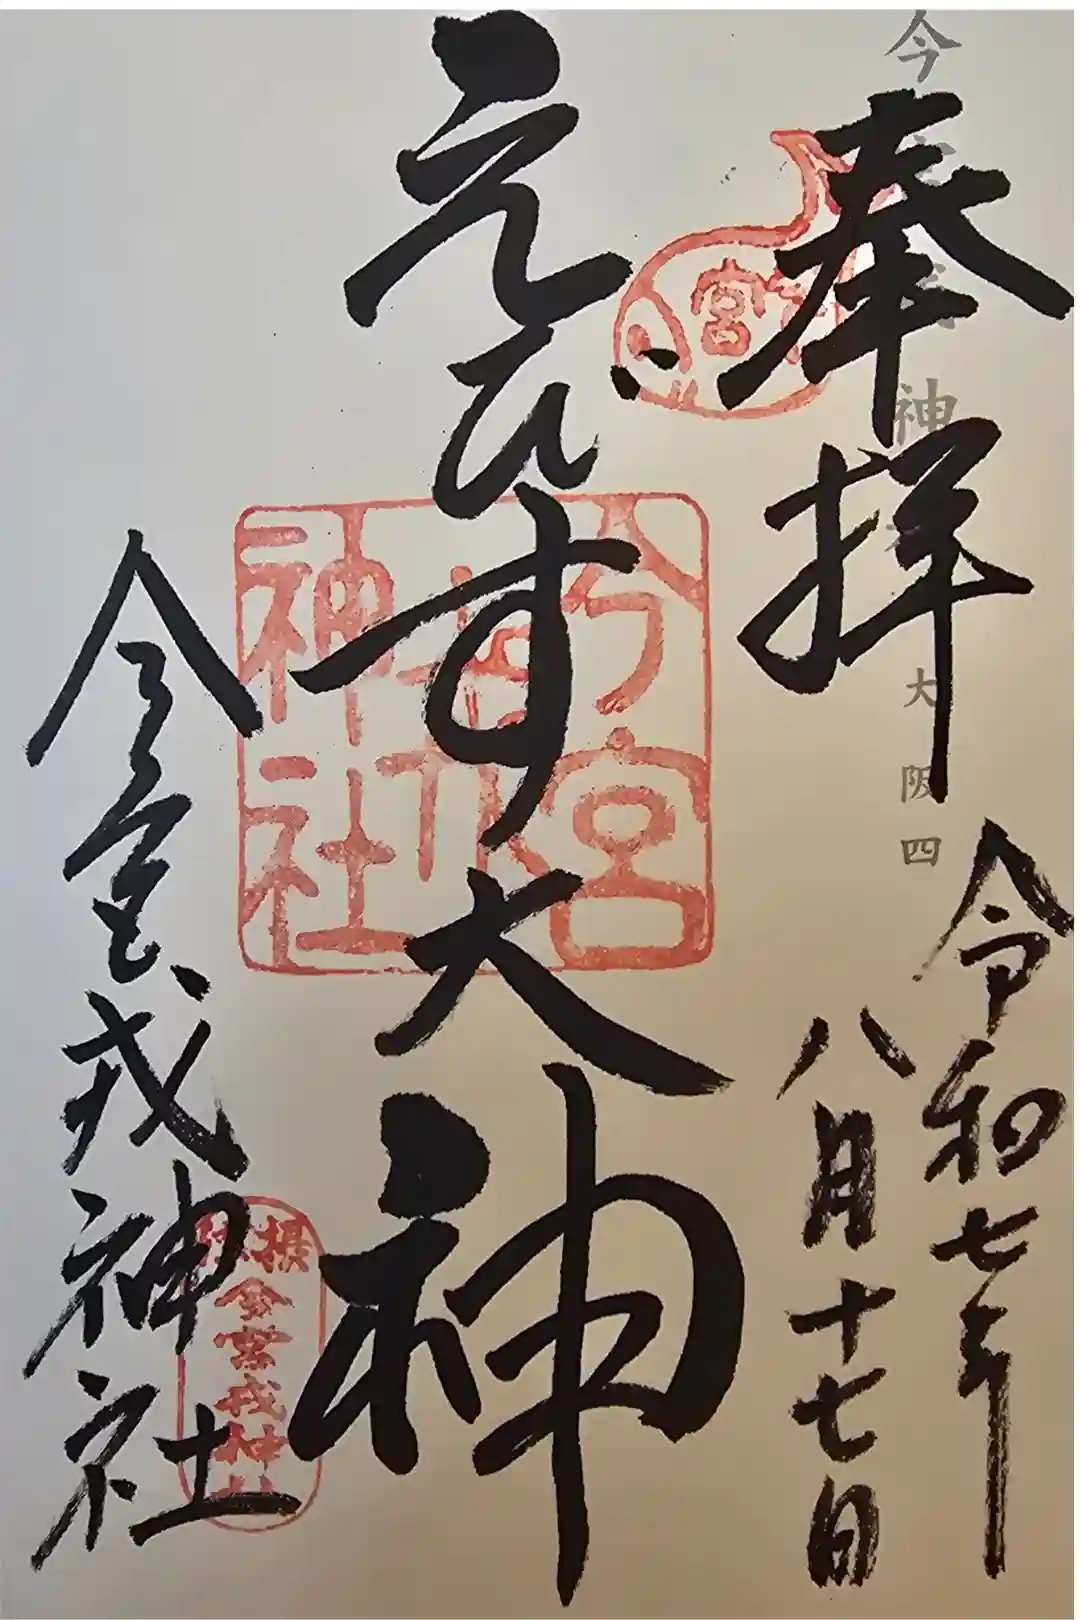 奉拝
令和七年
八月十七日
えびす大神
今宮戎神社
今宮戎神社
大阪四
今宮
戎
神社
今宮
摂
今宮戎神社